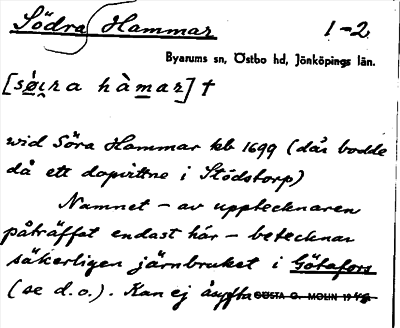 Södra Hammar 1-2
Byarums sn, Östbo hd, Jönköpings län.
[sø̀ıra hàmar] †
wid Söra Hammar kb 1699 (där bodde
då ett dopvittne i Stödstorp)
Namnet – av upptecknaren
påträffat endast här – betecknar
säkerligen järnbruket i Götafors
(se d.o.). Kan ej åsyfta GÖSTA O. MOLIN 19